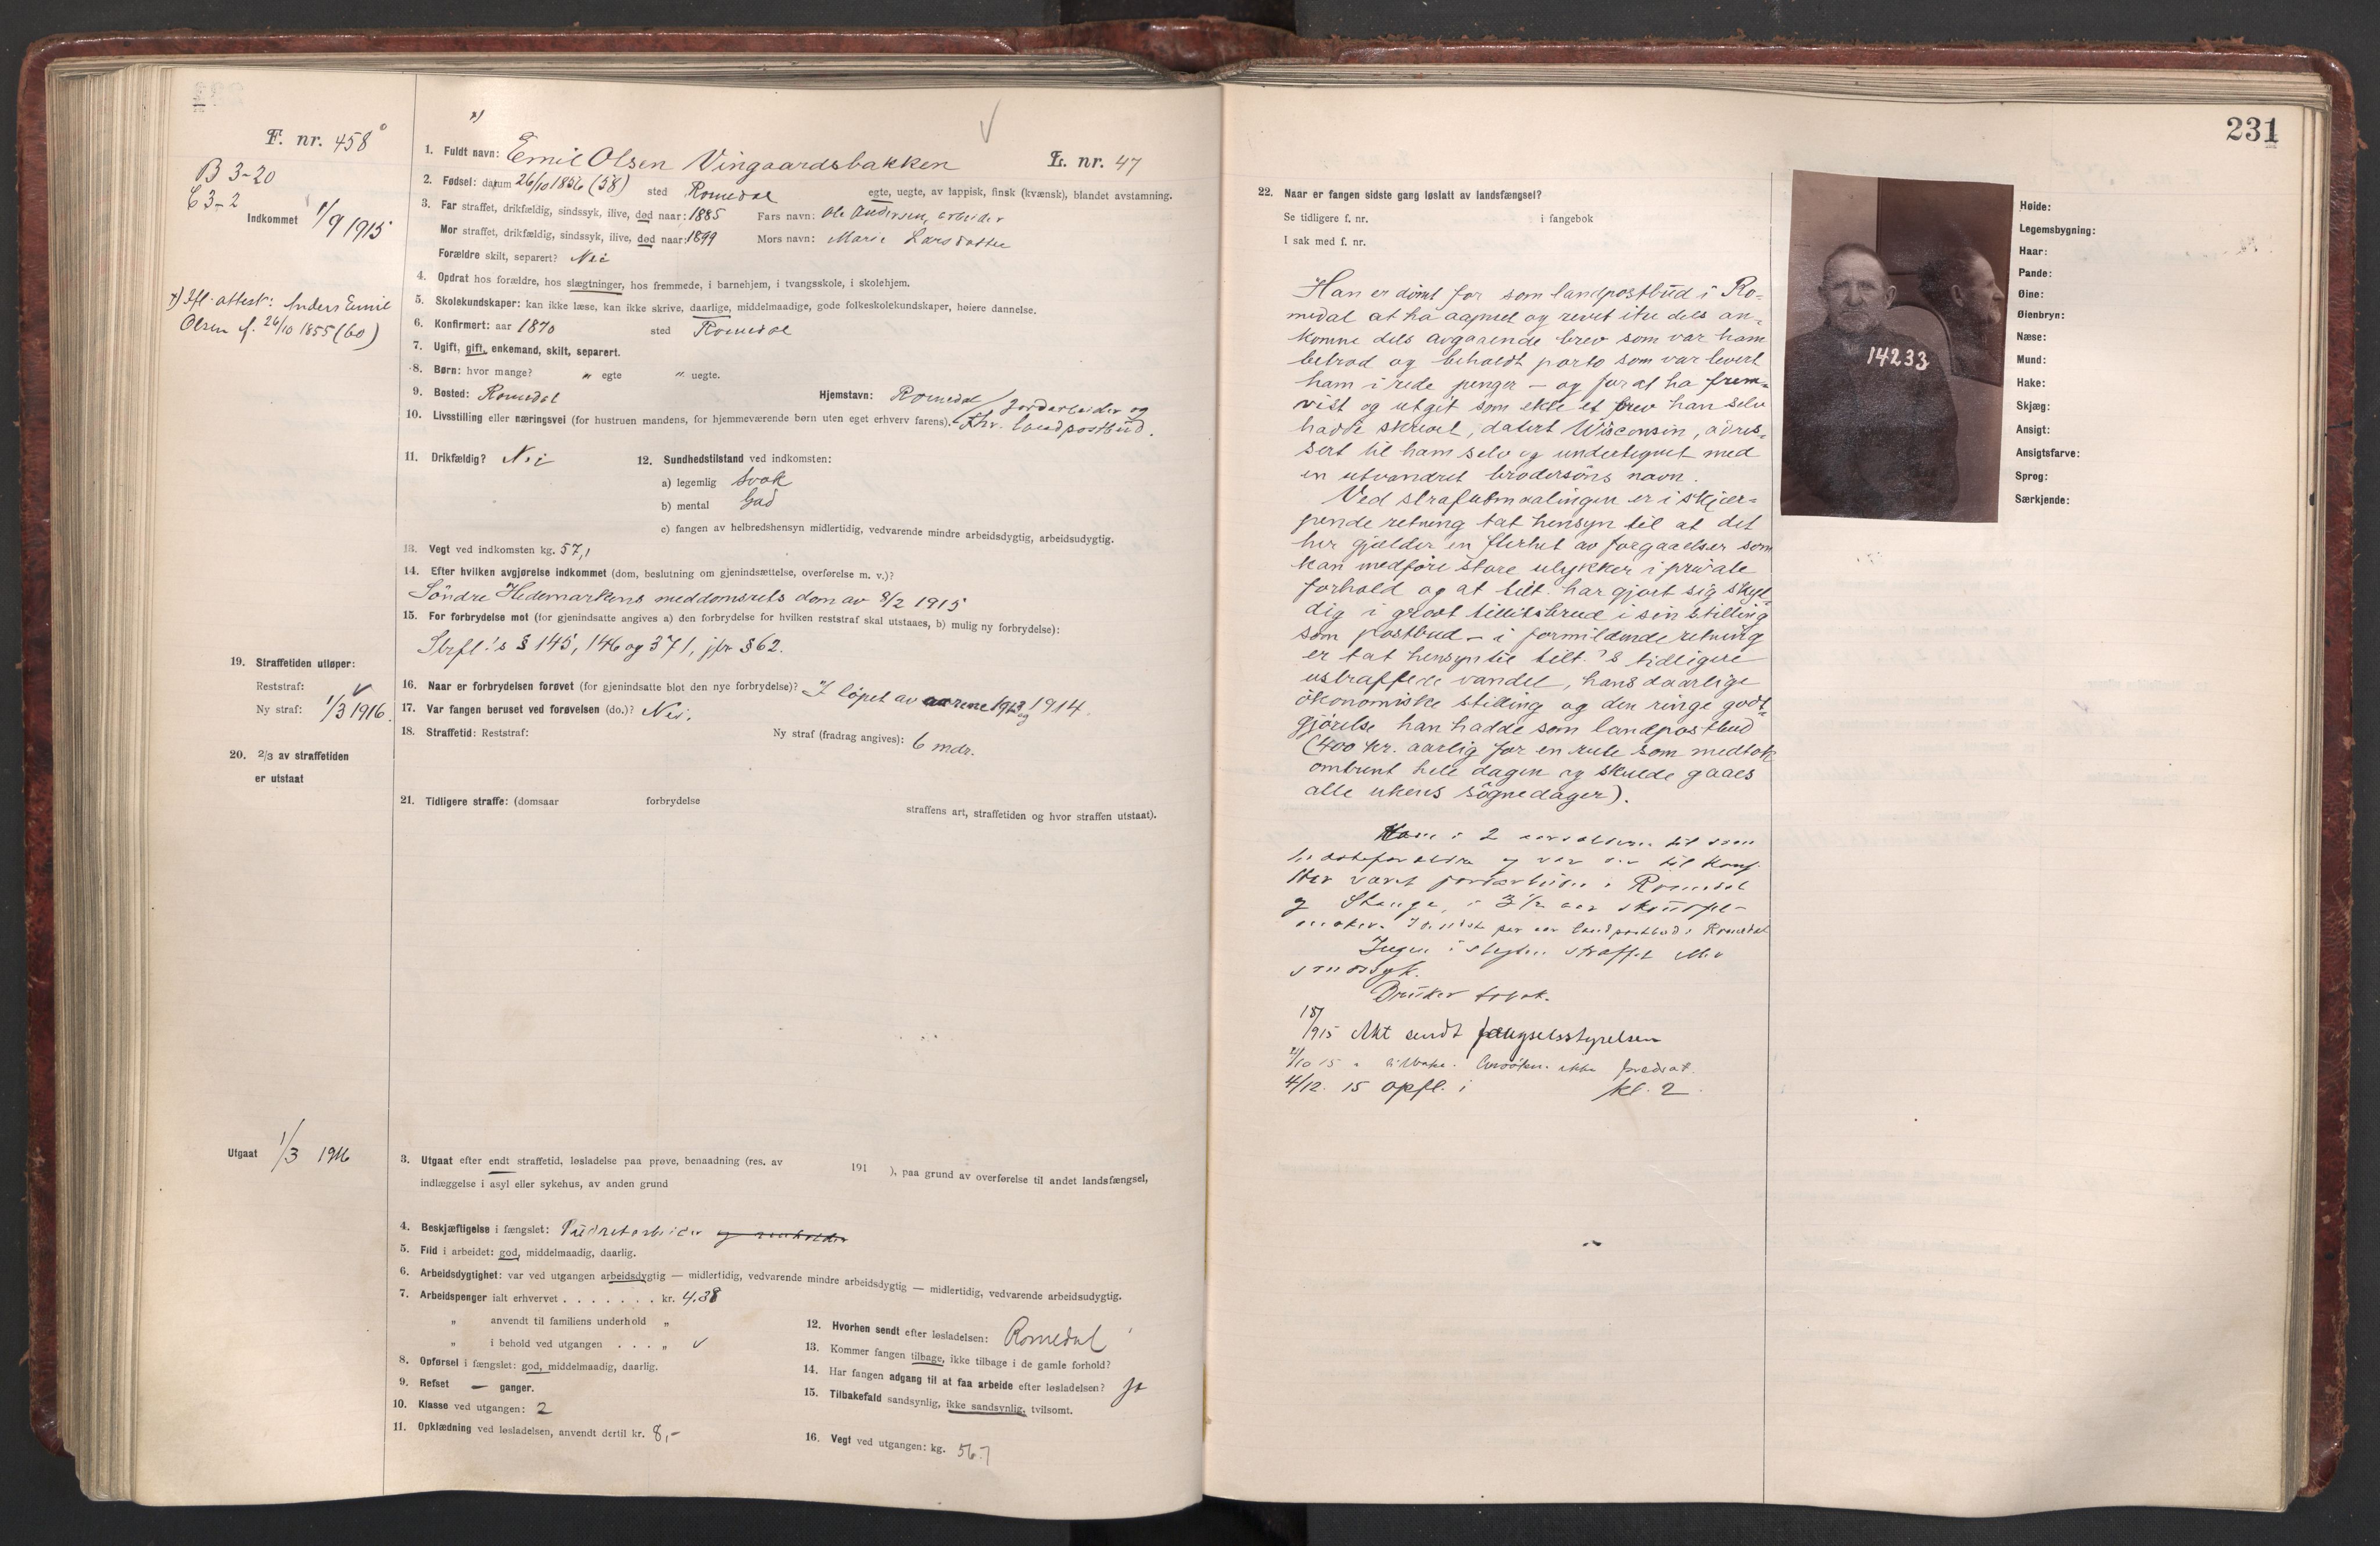 F. nr. 458
B 3-20
C 3-2
Indkommet 1/9 1915
x) Ifl. attest: Anders Emil
Olsen f. 26/10 1855 (60)
x)
1. Fuldt navn: Emil Olsen Vingaardsbakken L. nr. 47
2. Fødsel: datum 26/10 1856 (58) sted Romedal egte, uegte, av lappisk, finsk (kvænsk), blandet avstamning.
3. Far straffet, drikfældig, sindssyk, ilive, død naar: 1885 Fars navn: Ole Andersen, arbeider
Mor straffet, drikfældig, sindssyk, ilive, død naar: 1899 Mors navn: Marie Larsdatter
Forældre skilt, separert? Nei
4. Opdrat hos forældre, hos slægtninger, hos fremmede, i barnehjem, i tvangsskole, i skolehjem.
5. Skolekundskaper: kan ikke læse, kan ikke skrive, daarlige, middelmaadige, gode folkeskolekundskaper, høiere dannelse.
6. Konfirmert: aar 1870 sted Romedal
7. Ugift, gift, enkemand, skilt, separert.
8. Børn: hvor mange? " egte " uegte.
9. Bosted: Romedal Hjemstavn: Romedal
10. Livsstilling eller næringsvei (for hustruen mandens, for hjemmeværende børn uten eget erhverv farens). Jordarbeider og
fhv. landpostbud.
11. Drikfældig? Nei 12. Sundhedstilstand ved indkomsten:
a) legemlig Svak
b) mental God
c) fangen av helbredshensyn midlertidig, vedvarende mindre arbeidsdygtig, arbeidsudygtig.
13. Vegt ved indkomsten kg. 57,1
14. Efter hvilken avgjørelse indkommet (dom, beslutning om gjenindsættelse, overførelse m. v.)?
Søndre Hedemarkens meddomsrets dom av 8/2 1915
15. For forbrydelse mot (for gjenindsatte angives a) den forbrydelse for hvilken reststraf skal utstaaes, b) mulig ny forbrydelse):
Strfl.'s § 145, 146 og 371, jfr. § 62.
16. Naar er forbrydelsen forøvet (for gjenindsatte blot den nye forbrydelse)? I løpet av aarene 1913 og 1914.
17. Var fangen beruset ved forøvelsen (do.)? Nei.
18. Straffetid: Reststraf: Ny straf (fradrag angives): 6 mdr.
19. Straffetiden utløper:
Reststraf:
Ny straf: 1/3 1916.
20. 2/3 av straffetiden
er utstaat
21. Tidligere straffe: (domsaar forbrydelse straffens art, straffetiden og hvor straffen utstaat).
Utgaat 1/3 1916
3. Utgaat efter endt straffetid, løsladelse paa prøve, benaadning (res. av 191 ), paa grund av overførelse til andet landsfængsel,
indlæggelse i asyl eller sykehus, av anden grund
4. Beskjæftigelse i fængslet: Pudretarbeider og renholder
5. Flid i arbeidet: god, middelmaadig, daarlig.
6. Arbeidsdygtighet: var ved utgangen arbeidsdygtig — midlertidig, vedvarende mindre arbeidsdygtig — midlertidig, vedvarende arbeidsudygtig.
7. Arbeidspenger ialt erhvervet . . . . . . . kr. 4.38
" anvendt til familiens underhold "
" i behold ved utgangen . . . "
8. Opførsel i fængslet: god, middelmaadig, daarlig.
9. Refset — ganger.
10. Klasse ved utgangen: 2
11. Opklædning ved løsladelsen, anvendt dertil kr. 8,-
12. Hvorhen sendt efter løsladelsen: Romedal
13. Kommer fangen tilbage, ikke tilbage i de gamle forhold?
14. Har fangen adgang til at faa arbeide efter løsladelsen? Ja
15. Tilbakefald sandsynlig, ikke sandsynlig, tvilsomt.
16. Vegt ved utgangen: kg. 56.7
231
22. Naar er fangen sidste gang løslatt av landsfængsel?
Se tidligere f. nr. i fangebok
I sak med f. nr.
Han er dømt for som landpostbud i Ro-
medal at ha aapnet og revet itu dels an-
komne dels avgaaende brev som var ham
betrod og beholdt porto som var levert
ham i rede penger — og for at ha frem-
vist og utgit som ekte et brev han selv
hadde skrevet, datert Wisconsin, adres-
sert til ham selv og undertegnet med
en utvandret brodersöns navn.
Ved strafutmaalingen er i skjær-
pende retning tat hensyn til at det
her gjælder en flerhet av forgaaelser som
kan medføre store ulykker i private
forhold og at tilt. har gjort sig skyl-
dig i grovt tillitsbrud i sin stilling
som postbud — i formildende retning
er tat hensyn til tilt.'s tidligere
ustraffede vandel, hans daarlige
økonomiske stilling og den ringe godt-
gjørelse han hadde som landpostbud
(400 kr. aarlig for en rute som medtok
omtrent hele dagen og skulde gaaes
alle ukens søgnedager).
Kom i 2 aarsalderen til sine
bedsteforældre og var der til konf.
Har været jordarbeider i Romedal
og Stange, i 3 1/2 aar
par aar landpostbud i Romedal
Ingen i slegten straffet eller
sindssyk.
Bruker tobak.
1915 Akt sendt fængselsstyrelsen
tilbake. Ansøkn. ikke
4/12. 15 opfl. i kl. 2.
14233
Høide:
Legemsbygning:
Haar:
Pande:
Øine:
Øienbryn:
Næse:
Mund:
Hake:
Skjæg:
Ansigt:
Ansigtsfarve:
Sprog:
Særkjende: